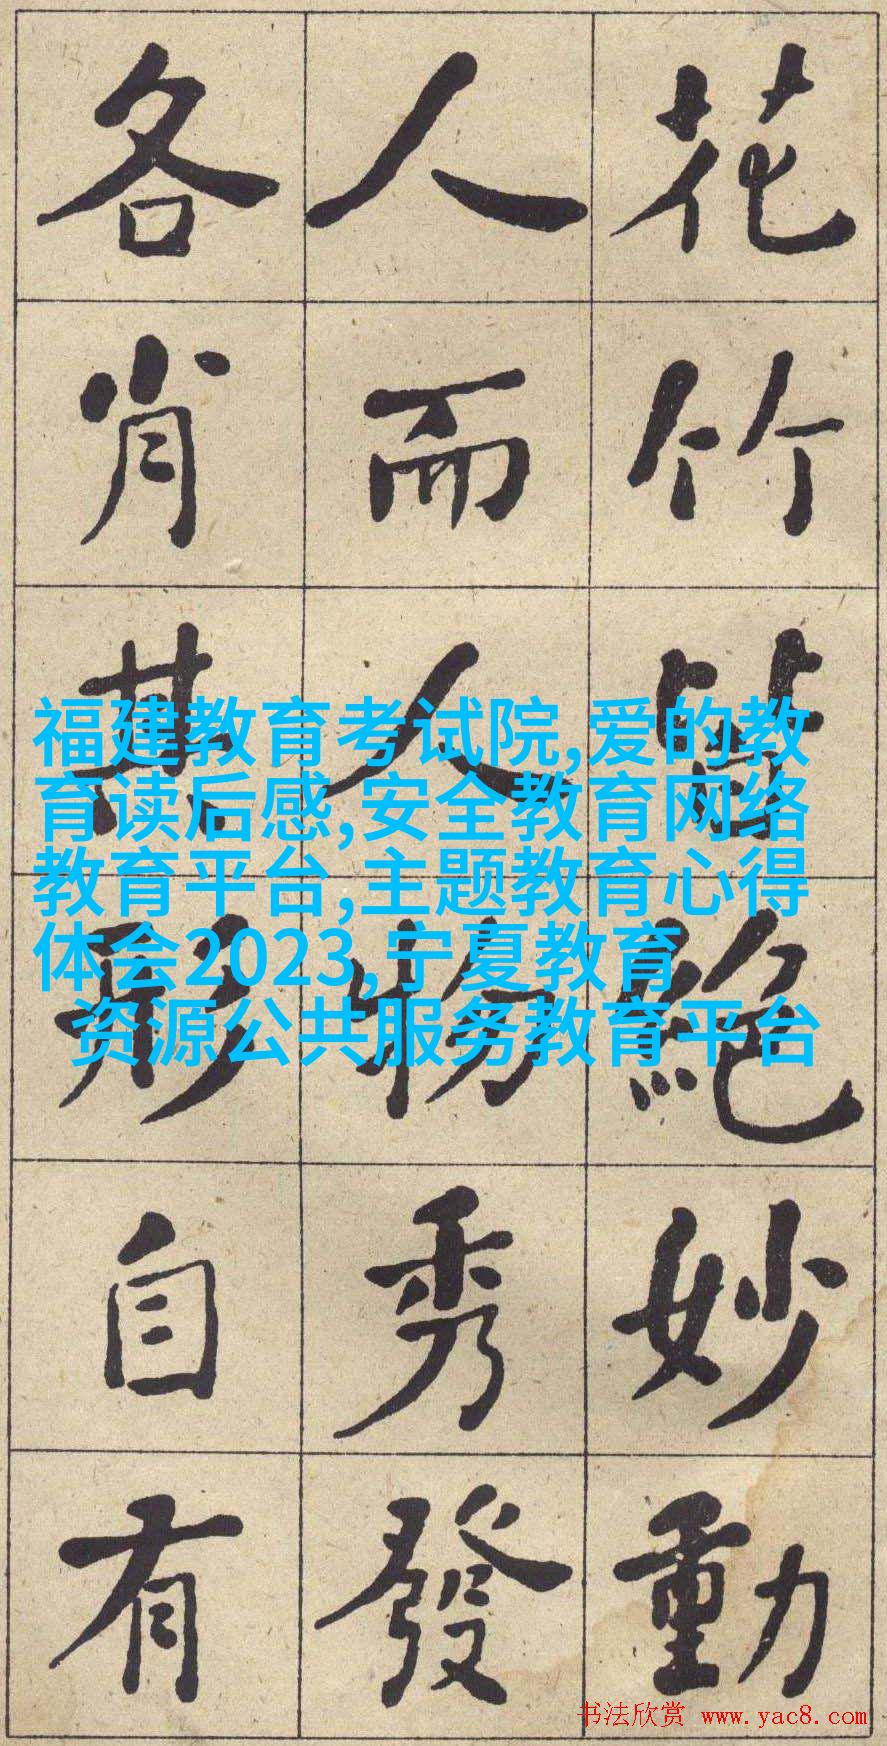 花竹皆絕妙動
人而人物秀發
各肖其形自有
福建教育考试院,爱的教
育读后感,安全教育网络
教育平台,主题教育心得
体会2023,宁夏教育
资源公共服务教育平台
书法欣赏 www.yac8.com